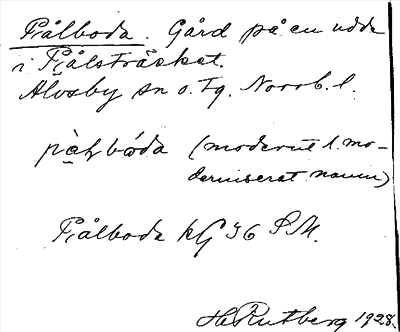 Pjålboda. Gård på en udde
i Pjålsträsket.
Älvsby sn o. Tg. Norrb. l.
(modernt l. mo-
derniserat namn)
Pjålboda kG 36 S.M.
H. Rutberg 1928.